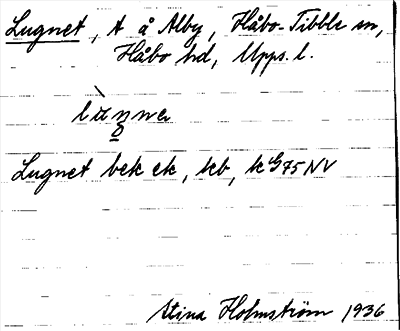 Lugnet, t å Alby, Håbo-Tibble sn,
Håbo hd, Upps. l.
Lugnet bek ek, kb, k G75NV
Stina Holmström 1936